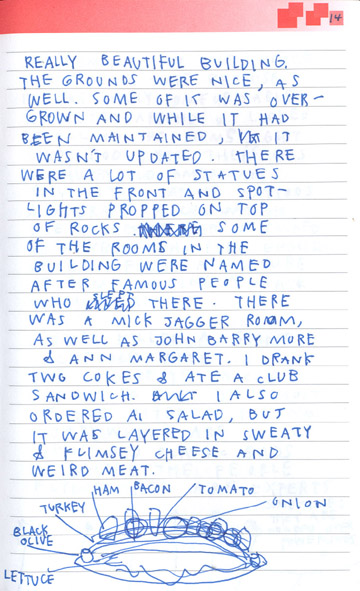 14
REALLY BEAUTIFUL BUILDING.
THE GROUNDS WERE NICE, AS
WELL. SOME OF IT WAS OVER-
GROWN AND WHILE IT HAD
BEEN MAINTAINED, IT
WASN'T UPDATED. THERE
WERE A LOT OF STATUES
IN THE FRONT AND SPOT-
LIGHTS PROPPED ON TOP
OF ROCKS. SOME
OF THE ROOMS IN THE
BUILDING WERE NAMED
AFTER FAMOUS PEOPLE
WHO SLEPT THERE. THERE
WAS A MICK JAGGER ROOM,
AS WELL AS JOHN BARRY MORE
& ANN MARGARET. I DRANK
TWO COKES & ATE A CLUB
SANDWICH. I ALSO
ORDERED A SALAD, BUT
IT WAS LAYERED IN SWEATY
& FLIMSEY CHEESE AND
WEIRD MEAT.
HAM BACON TOMATO
TURKEY ONION
BLACK
OLIVE
LETTUCE